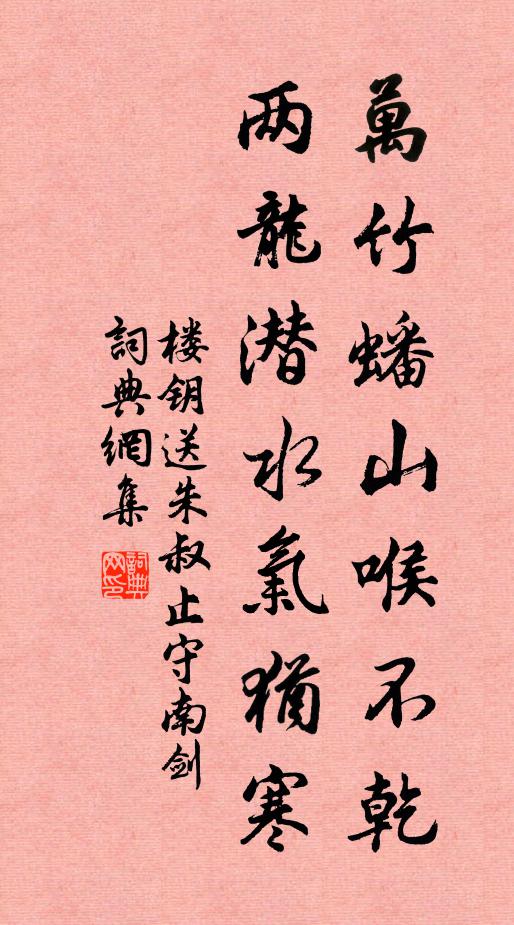 萬竹蟠山喉不乾
两龍潜水氣猶寒
楼钥送朱叔止守南剑
詞典網集
詞典网印